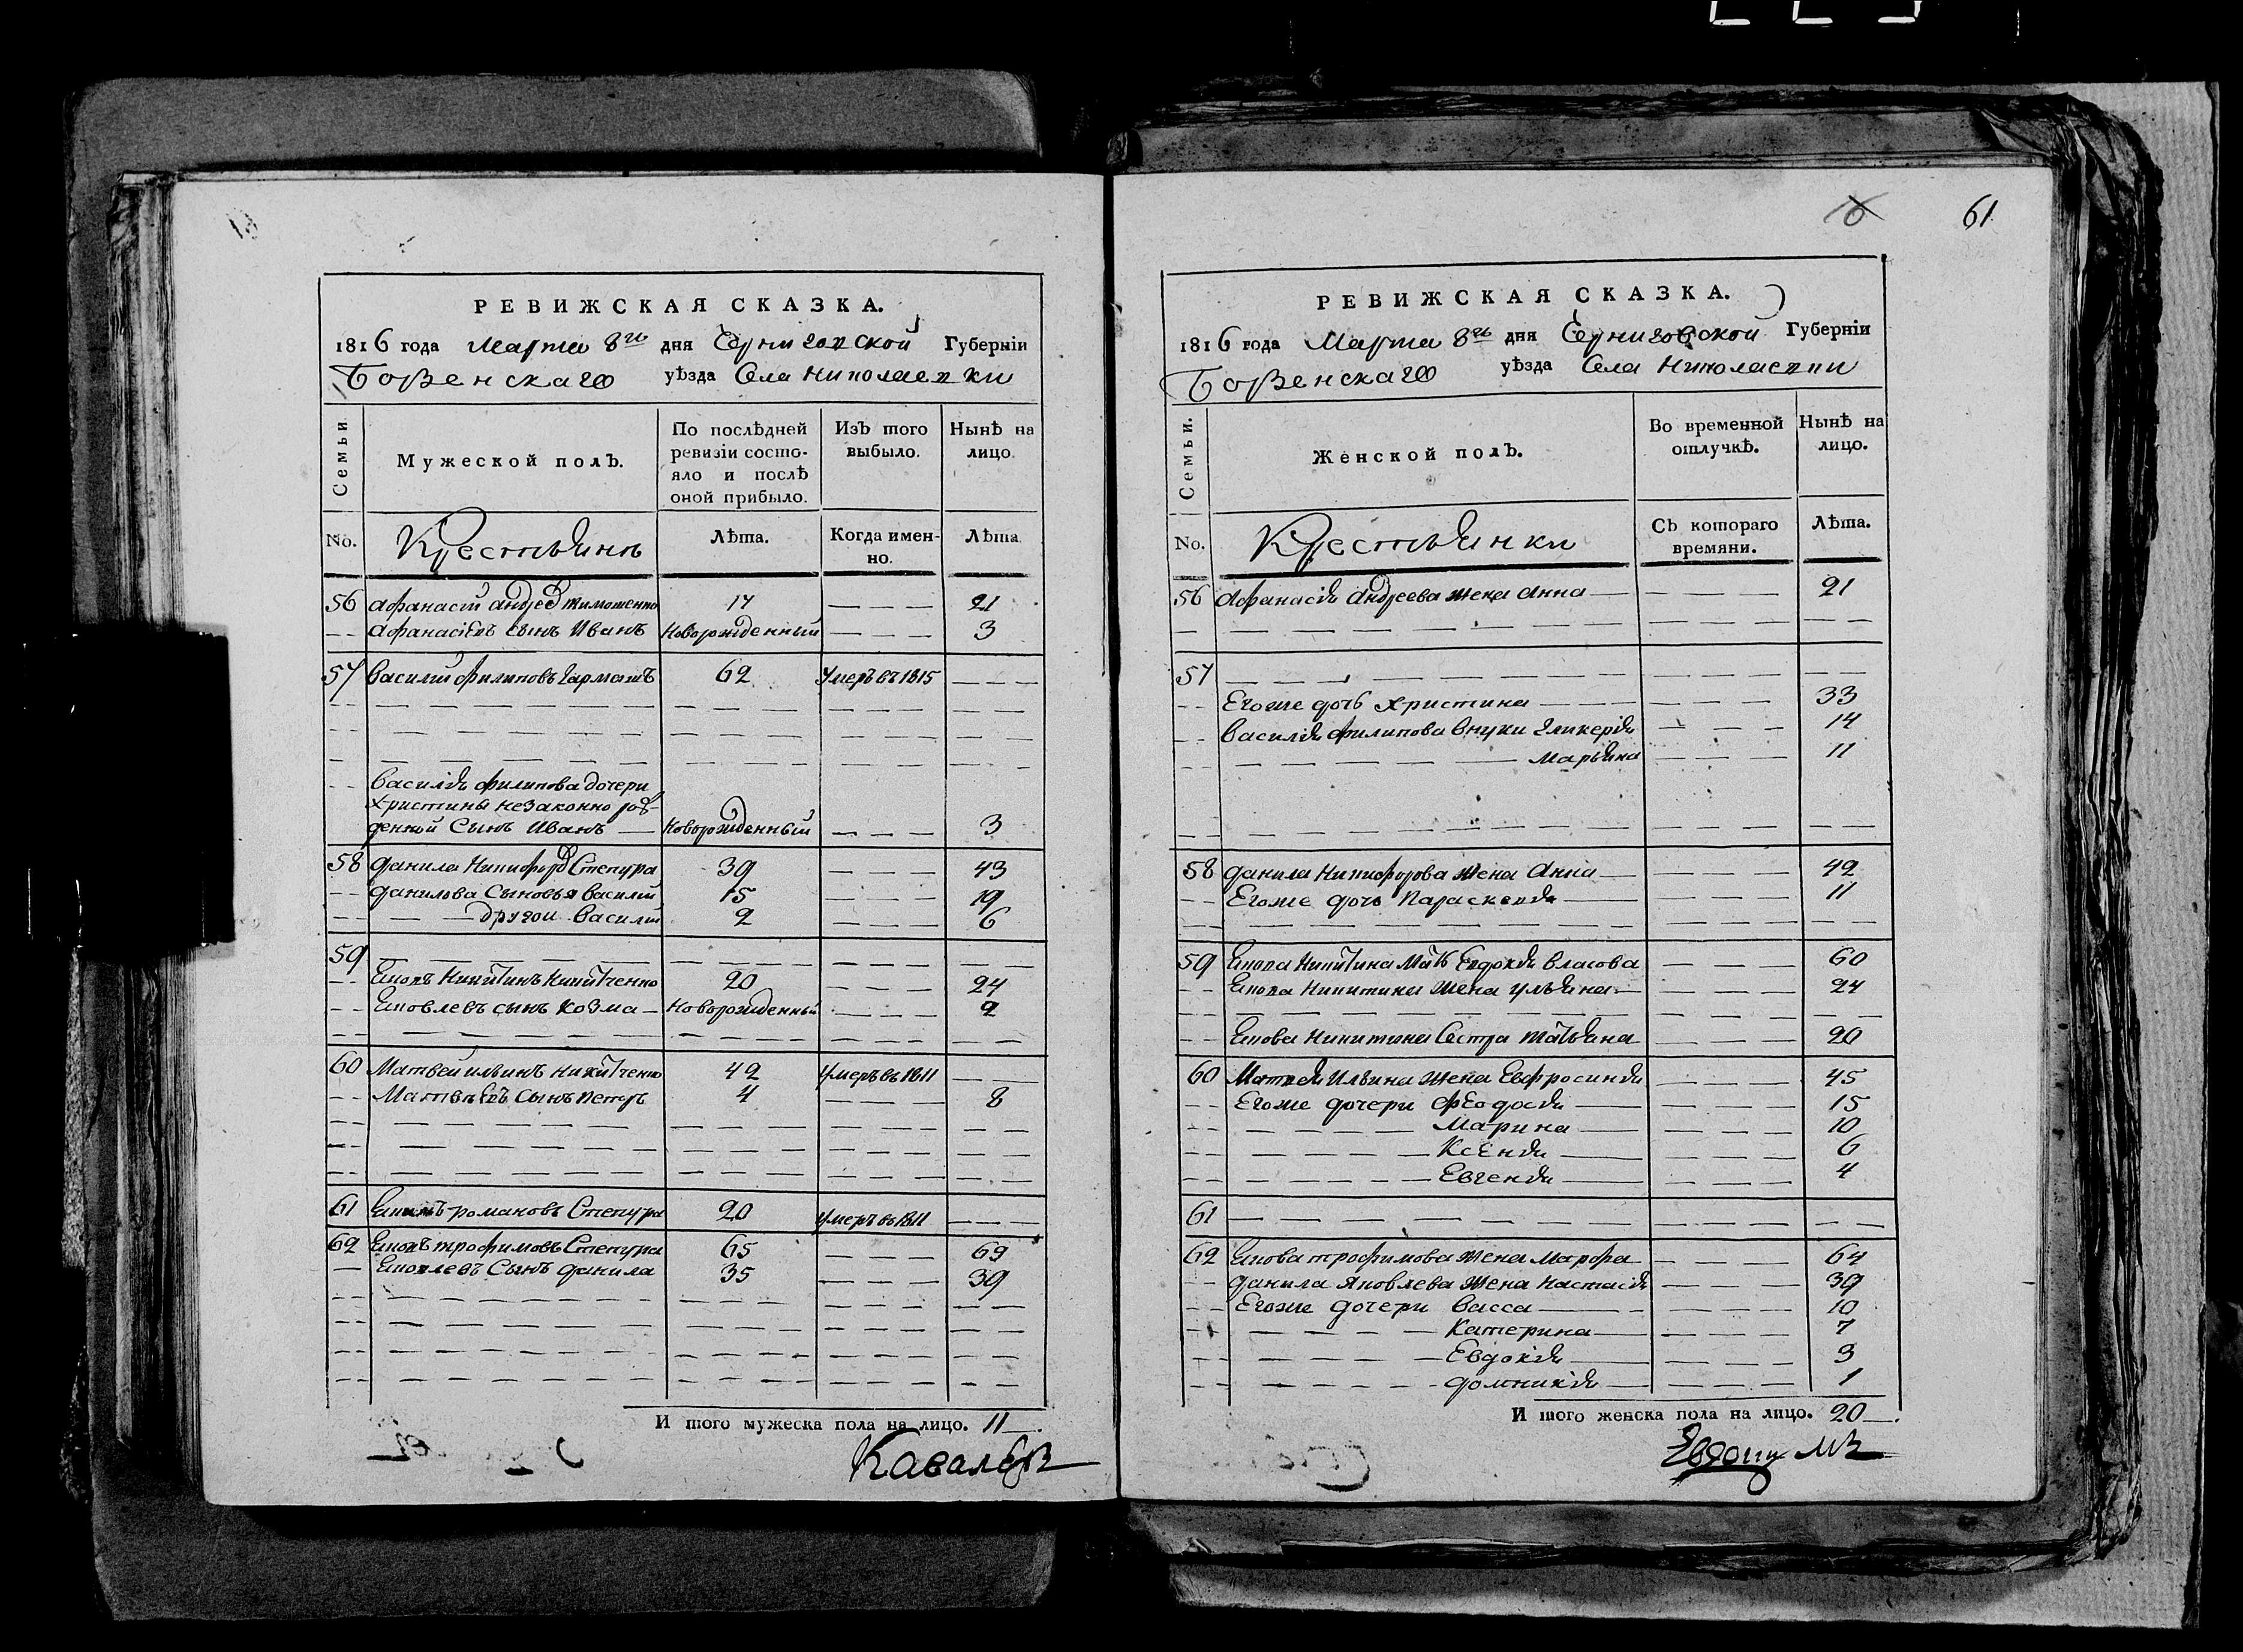 61
РЕВИЖСКАЯ СКАЗКА.
1816 года Марта 8го дня Черниговской Губерніи
Борзенскаго уѣзда Села Николаевки
Семьи.
Мужеской полъ.
По послѣдней ревизіи состо-
яло и послѣ
оной прибыло.
Изъ того выбыло.
Нынѣ на лицо
No. Крестьянъ Лѣта. Когда имен-
но. Лѣта
56 Афанасій Андреев Тимошенко 17 — — — 21
— — Афанасіевъ сынъ Иванъ Новорожденный — — — 3
57 Василій Филиповъ Гармашъ 62 Умеръ въ 1815 — — —
— — Василія Филипова дочери
Христины незаконно рож-
денной Сынъ Иванъ — Новорожденный — — — 3
58 Данила Никифоров Степура 39 — — — 43
— — Данилова Сыновья Василій 15 — — — 19
— — — — другой Василій 2 — — — 6
59 — — — — — —
— — Яковъ Никитинъ Никитченко 20 — — — 24
— — Яковлевъ сынъ Козма — Новорожденный — — — 2
60 Матвей Ильинъ Никитченко 42 Умеръ въ 1811 — —
— — Матвѣевъ Сынъ Петръ 4 — — — 8
61 Романовъ Степура 20 Умеръ въ 1811 — — —
62 Яковъ Трофимовъ Степура 65 — — — 69
— Яковлевъ Сынъ Данила 35 — — — 39
И того мужеска пола на лицо. 11
61
РЕВИЖСКАЯ СКАЗКА.
1816 года Марта 8го дня Черниговской Губерніи
Борзенскаго уѣзда Села Николаевки
Семьи.
Женской полъ.
Во временной отлучкѣ.
Нынѣ на лицо.
No. Крестьянки Съ котораго
времяни. Лѣта.
56 Афанасія Андреева жена Анна — — — — 21
57 — — — — — —
— — Егоже дочь Христина — — — — 33
— — Василія Филипова внуки Гликерія — — — 14
— — — — — Марьяна — — — 11
58 Данила Никифорова жена Анна — — — — 42
— — Егоже дочь Параскевія — — — — 11
59 Якова Никитина Мать Евдокія Власова — — — 60
— — Якова Никитина жена Ульяна — — — — 24
— — Якова Никитина Сестра Татьяна — — — 20
60 Матвея Ильина жена Евфросинія — — — 45
— — Егоже дочери Феодосія — — — — 15
— — — — — Марина — — — — 10
— — — — — Ксенія — — — — 6
— — — — — Евгенія — — — — 4
61 — — — — — —
62 Якова Трофимова жена Марфа — — — 64
— — Данила Яковлева жена Настасія — — — 39
— — Егоже дочери Васса — — — — 10
— — — — — Катерина — — — — 7
— — — — — Евдокія — — — — 3
— — — — — Домникія — — — — 1
И того женска пола на лицо. 20